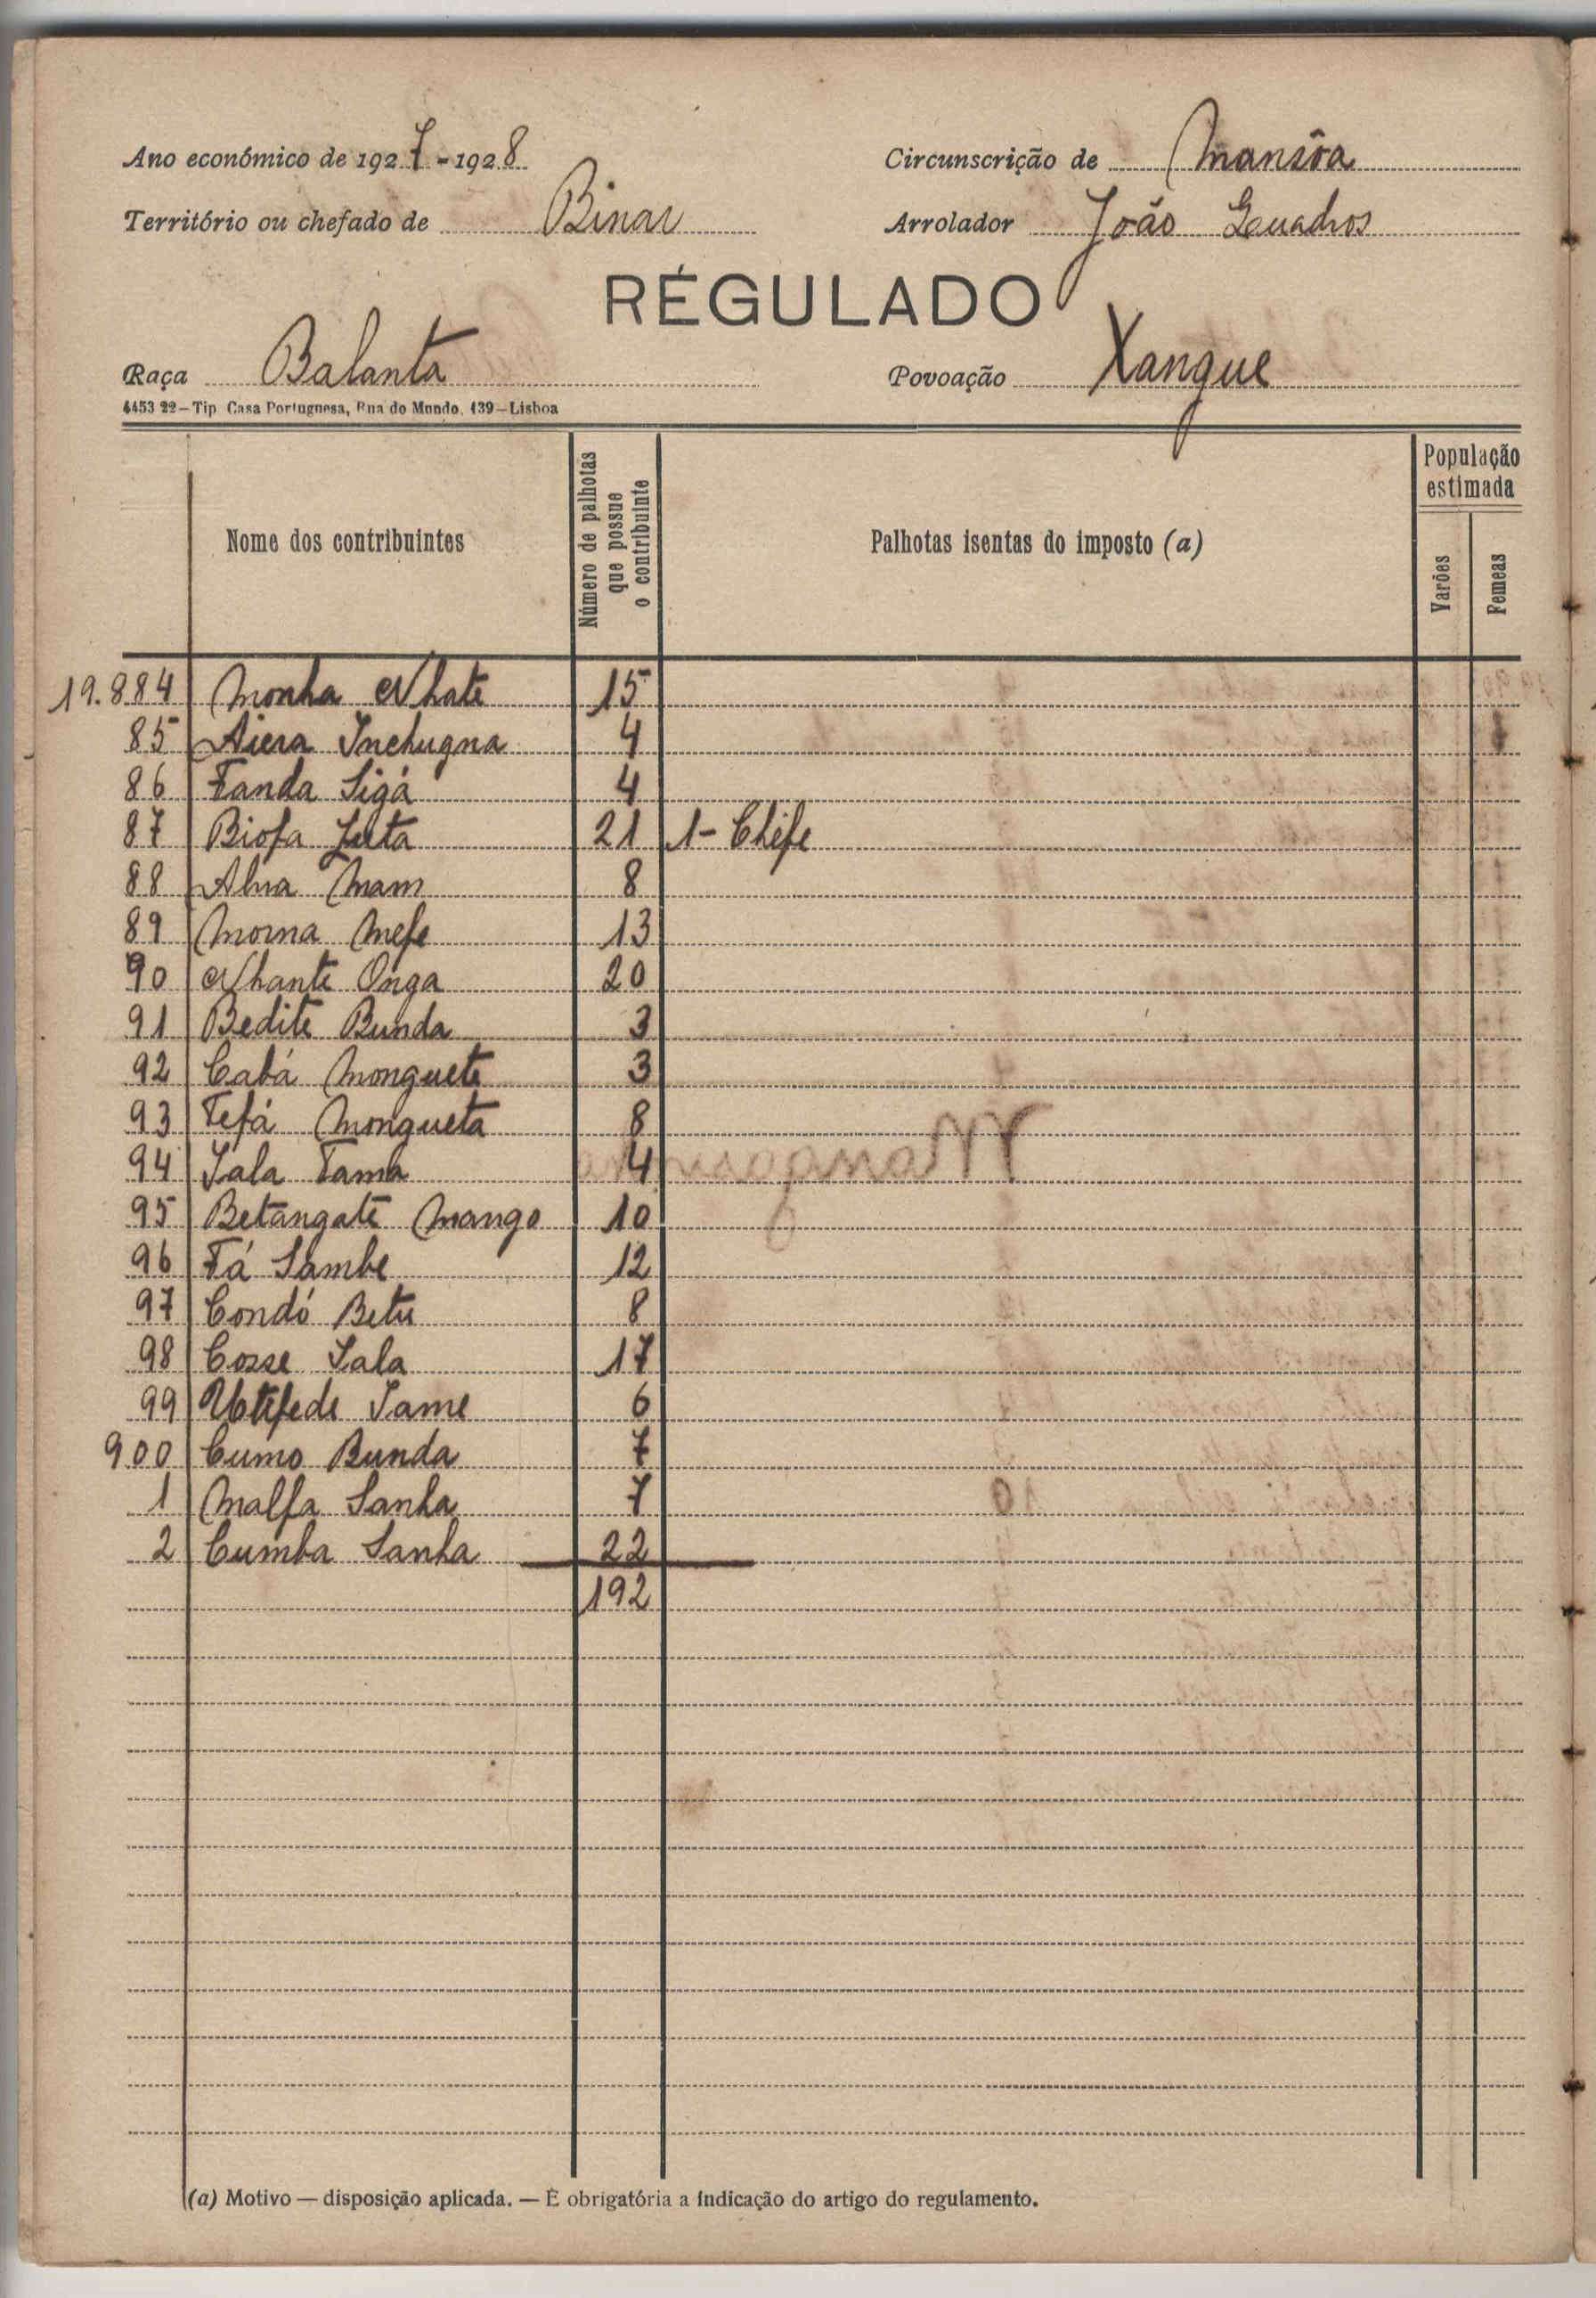 Ano económico de 1927-1928 Circunscrição de Mansôa
Território ou chefado de Binar Arrolador João Quadros
RÉGULADO
Raça Balanta Povoação Xangue
4453 22—Tip. Casa Portuguesa, Rua do Mundo, 139—Lisboa
Nome dos contribuintes
Número de palhotas que possue o contribuinte
Palhotas isentas do imposto (a)
População estimada
Varões
Femeas
19.884 Monha Nhate 15
85 Aiera Inchugna 4
86 Fanda Sigá 4
87 Biofa Juta 21 1- Chéfe
88 Alua Mam 8
89 Morna Mefe 13
90 Nhante Onga 20
91 Bedite Bunda 3
92 Cabá Monguete 3
93 Tefá Mongueta 8
94 Tama 4
95 Betangate Mango 10
96 Fá Sambe 12
97 Condó Betu 8
98 Cosse 17
99 6
900 Cumo Bunda 7
1 Malfa Sanha 7
2 Cumba Sanha 22
192
(a) Motivo — disposição aplicada. — É obrigatória a indicação do artigo do regulamento.